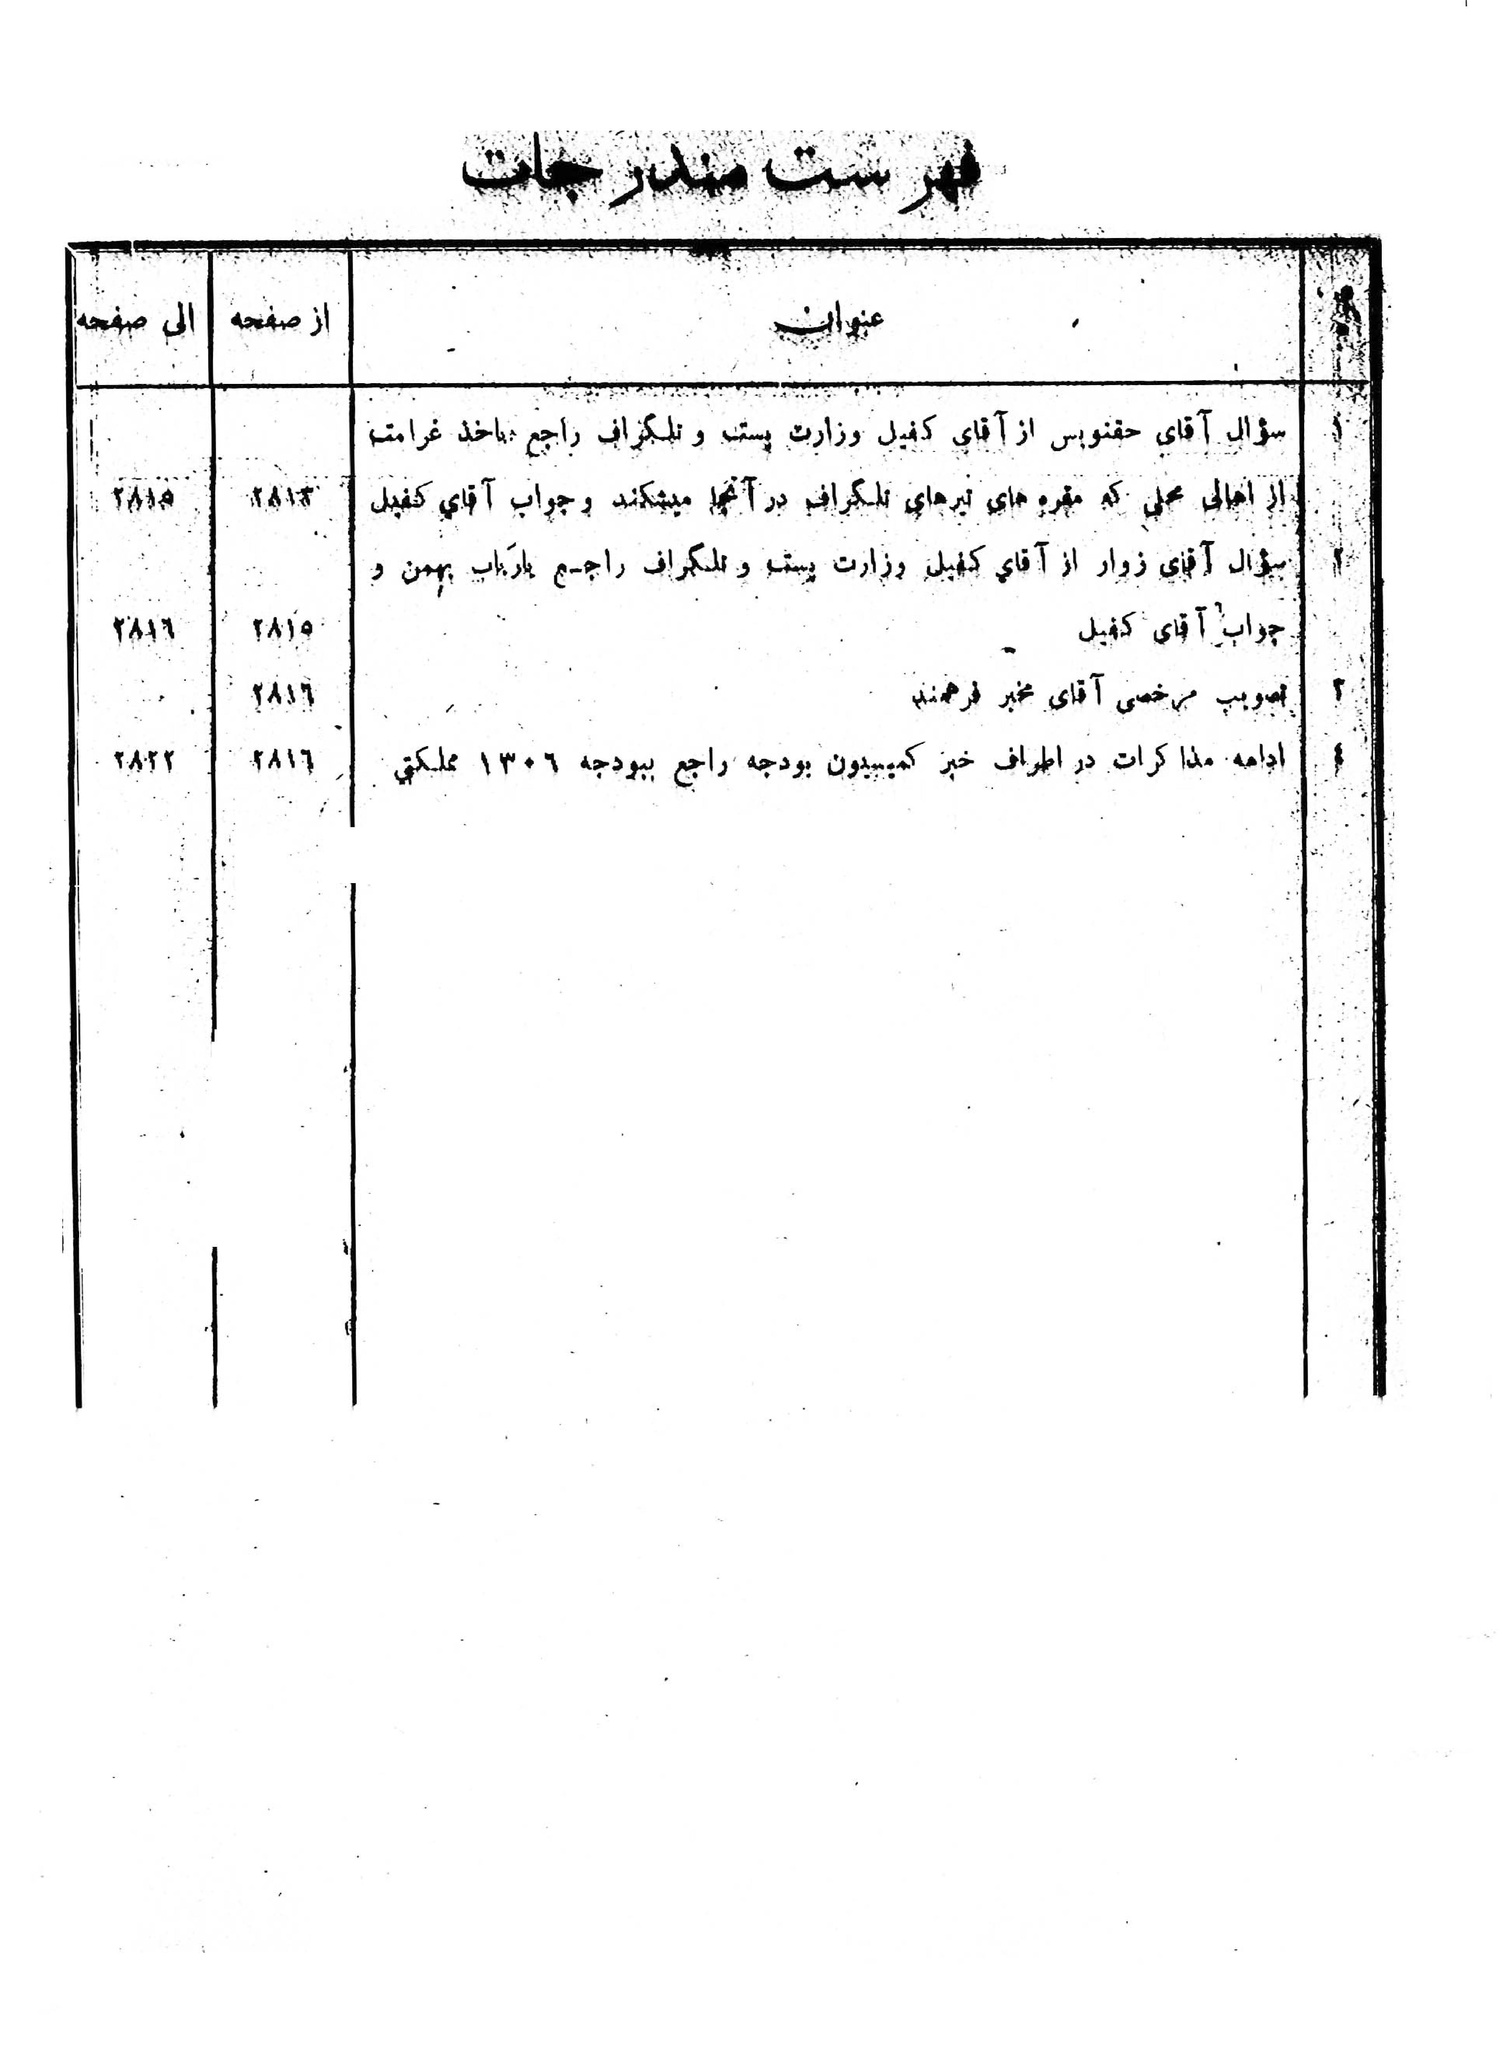 فهرست مندرجات
عنوان از صفحه الی صفحه
۱ سؤال آقای حقنویس از آقای کفیل وزارت پست و تلگراف راجع باخذ غرامت
از اهالی محلی که مقره های تیرهای تلگراف در آنجا میشکند و جواب آقای کفیل ۲۸۱۳ ۲۸۱۵
۲ سؤال آقای زوار از آقای کفیل وزارت پست و تلگراف راجع بارباب بهمن و
جواب آقای کفیل ۲۸۱۵ ۲۸۱٦
۳ تصویب مرخصی آقای مخبر فرهمند ۲۸۱٦
٤ ادامه مذاکرات در اطراف خبر کمیسیون بودجه راجع ببودجه ۱۳۰٦ مملکتی ۲۸۱٦ ۲۸۲۲